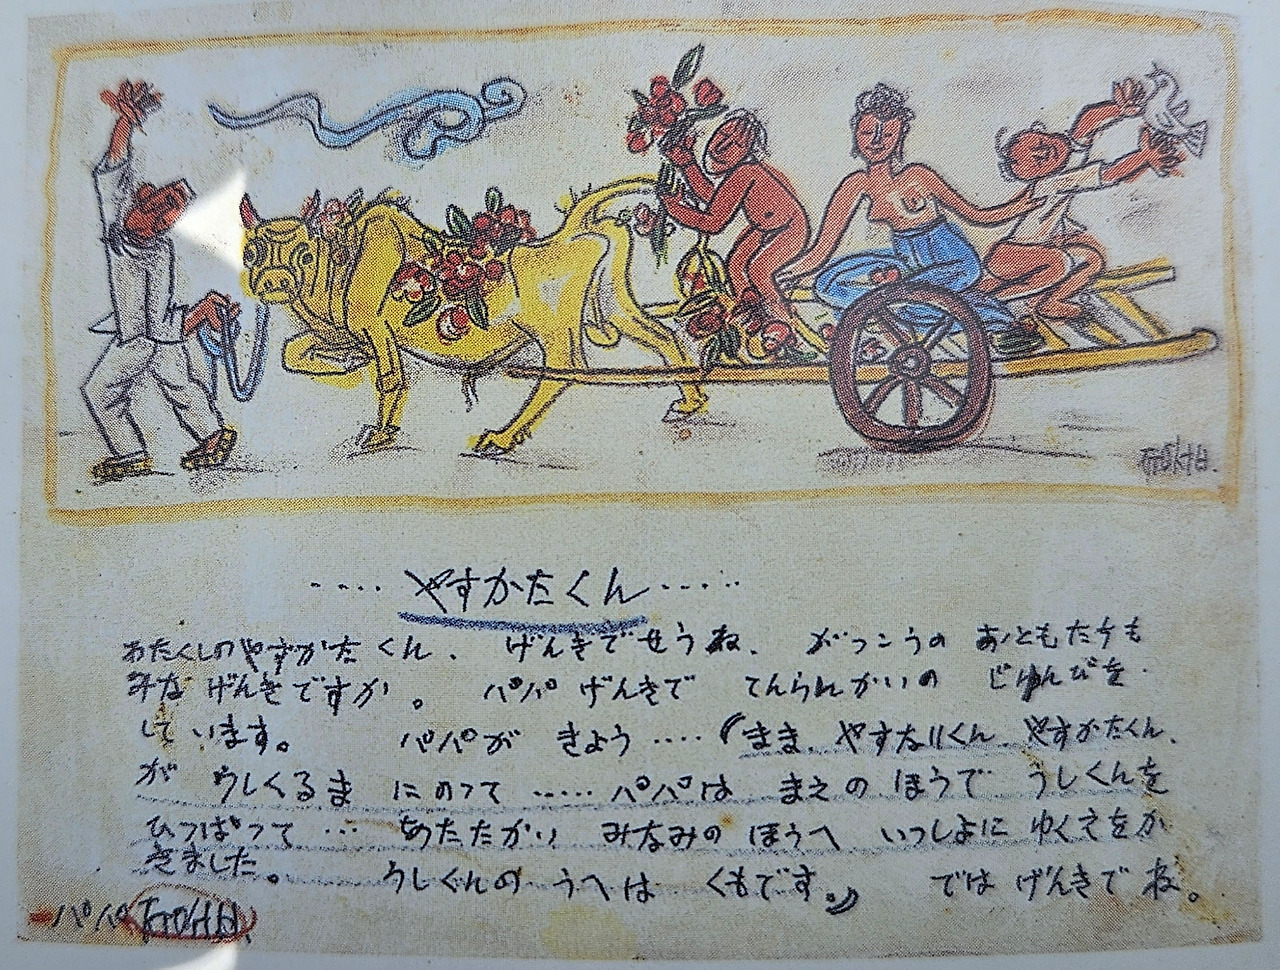 ㅈㅜㅇㅅㅓㅂ
‥‥やすかたくん‥‥‥
わたくしのやすかたくん、げんきでせうね、がつこうのおともたちも
みなげんきですか。パパげんきでてんらんかいのじゆんびを
しています。パパがきよう‥‥(まま、やすなりくん、やすかたくん、
がうしくるまにのつて……パパはまえのほうでうしくんを
ひつぱつて…あたたかいみなみのほうへいつしよにゆくえをか
きました。うしくんのうへはくもです。)ではげんきでね。
パパㅈㅜㅇㅅㅓㅂ